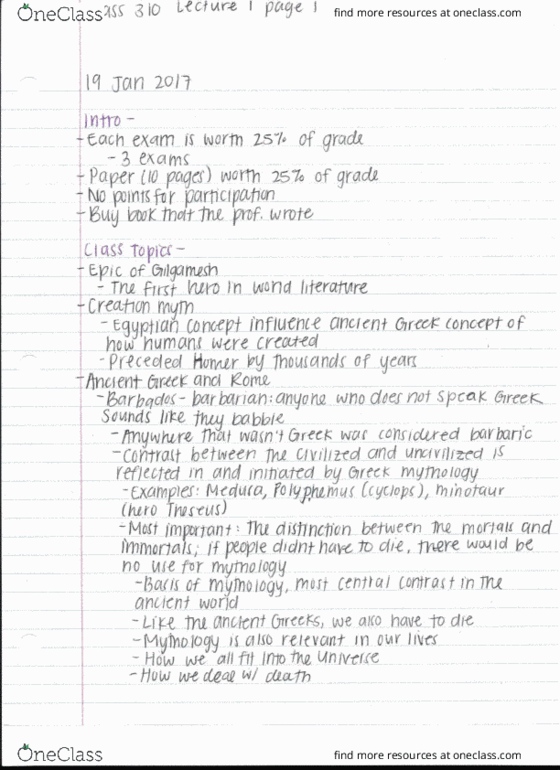 OneClass
ass 310 Lecture 1 page 1
find more resources at oneclass.com
19 Jan 2017
Intro -
- Each exam is worth 25% of grade
- 3 exams
- Paper (10 pages) worth 25% of grade
- No points for participation
- Buy book that the prof. wrote
Class Topics -
- Epic of Gilgamesh
- The first hero in world literature
- Creation myth
- Egyptian concept influence ancient Greek concept of
how humans were created
- Preceded Homer by thousands of years
- Ancient Greek and Rome
- Barbados - barbarian: anyone who does not speak Greek
sounds like they babble
- Anywhere that wasn't Greek was considered barbaric
- Contrast between the civilized and uncivilized is
reflected in and initiated by Greek mythology
- Examples: Medusa, Polyphemus (cyclops), minotaur
(hero Theseus)
- Most important: The distinction between the mortals and
immortals; if people didnt have to die, there would be
no use for mythology
- Basis of mythology, most central contrast in the
ancient world
- Like the ancient Greeks, we also have to die
- Mythology is also relevant in our lives
- How we all fit into the Universe
- How we deal w/ death
OneClass
find more resources at oneclass.com